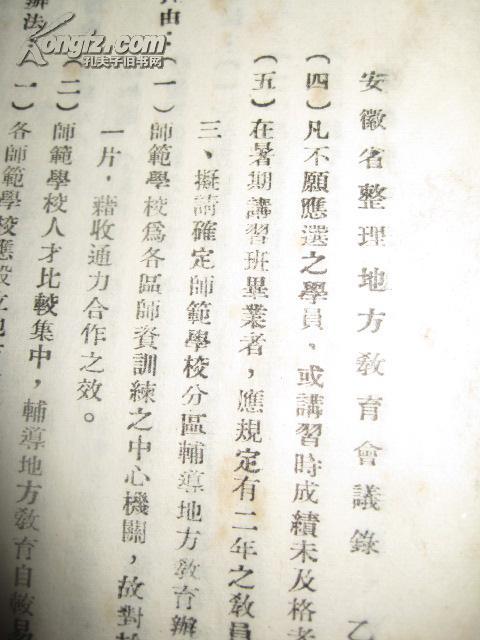 安徽省整理地方教育會議錄 乙
(四)凡不願應選之學員，或講習時成績未及格者
(五)在暑期講習班畢業者，應規定有二年之教員
三、擬請確定師範學校分區輔導地方教育辦
由：(一)師範學校爲各區師資訓練之中心機關，故對於
一片，藉收通力合作之效。
(二)師範學校人才比較集中，輔導地方教育自較易
辦法：(一)各師範學校應設立地方
Kongfz.com
孔夫子旧书网